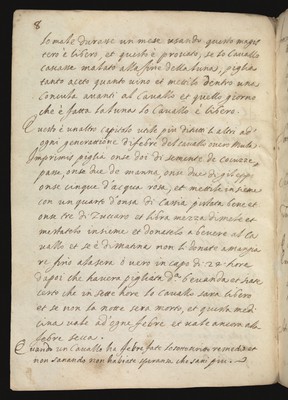 8
lo male durasse un mese usando questo magis
terio è libero, et questo è provato, se lo Cavallo
cascasse malato alla fine della luna, piglia
tanto aceto quanto vino et mettilo dentro una
Concula avanti al Cavallo et quello giorno
che è fatta la luna lo Cavallo è libero.
Questo è un altro capitolo utile più di tutti li altri ad
ogni generatione di febre del cavallo over Mulo
Imprimis piglia onse doi di semente de
onse due de manna, onse due di
onse cinque d'acqua rosa, et mettile insieme
con un quarto d'onsa di Cassia, pista bene et
onse tre di Zuccaro et libra mezza di mele et
mestatelo insieme et donatelo a bevere al Ca
vallo et se è di matina non li donate a mangia
re fino a la sera ò vero in capo di 24 hore
dapoi che haverà pigliata d.ª bevanda et state
certo che in sette hore lo Cavallo sarà libero
et se non la notte serà morto, et questa medi
cina vale ad ogne febre et vale ancora alla
febre secca.
Quando un Cavallo hà febre fate lo remedi et
non sanando non habiate speranza che sani più.